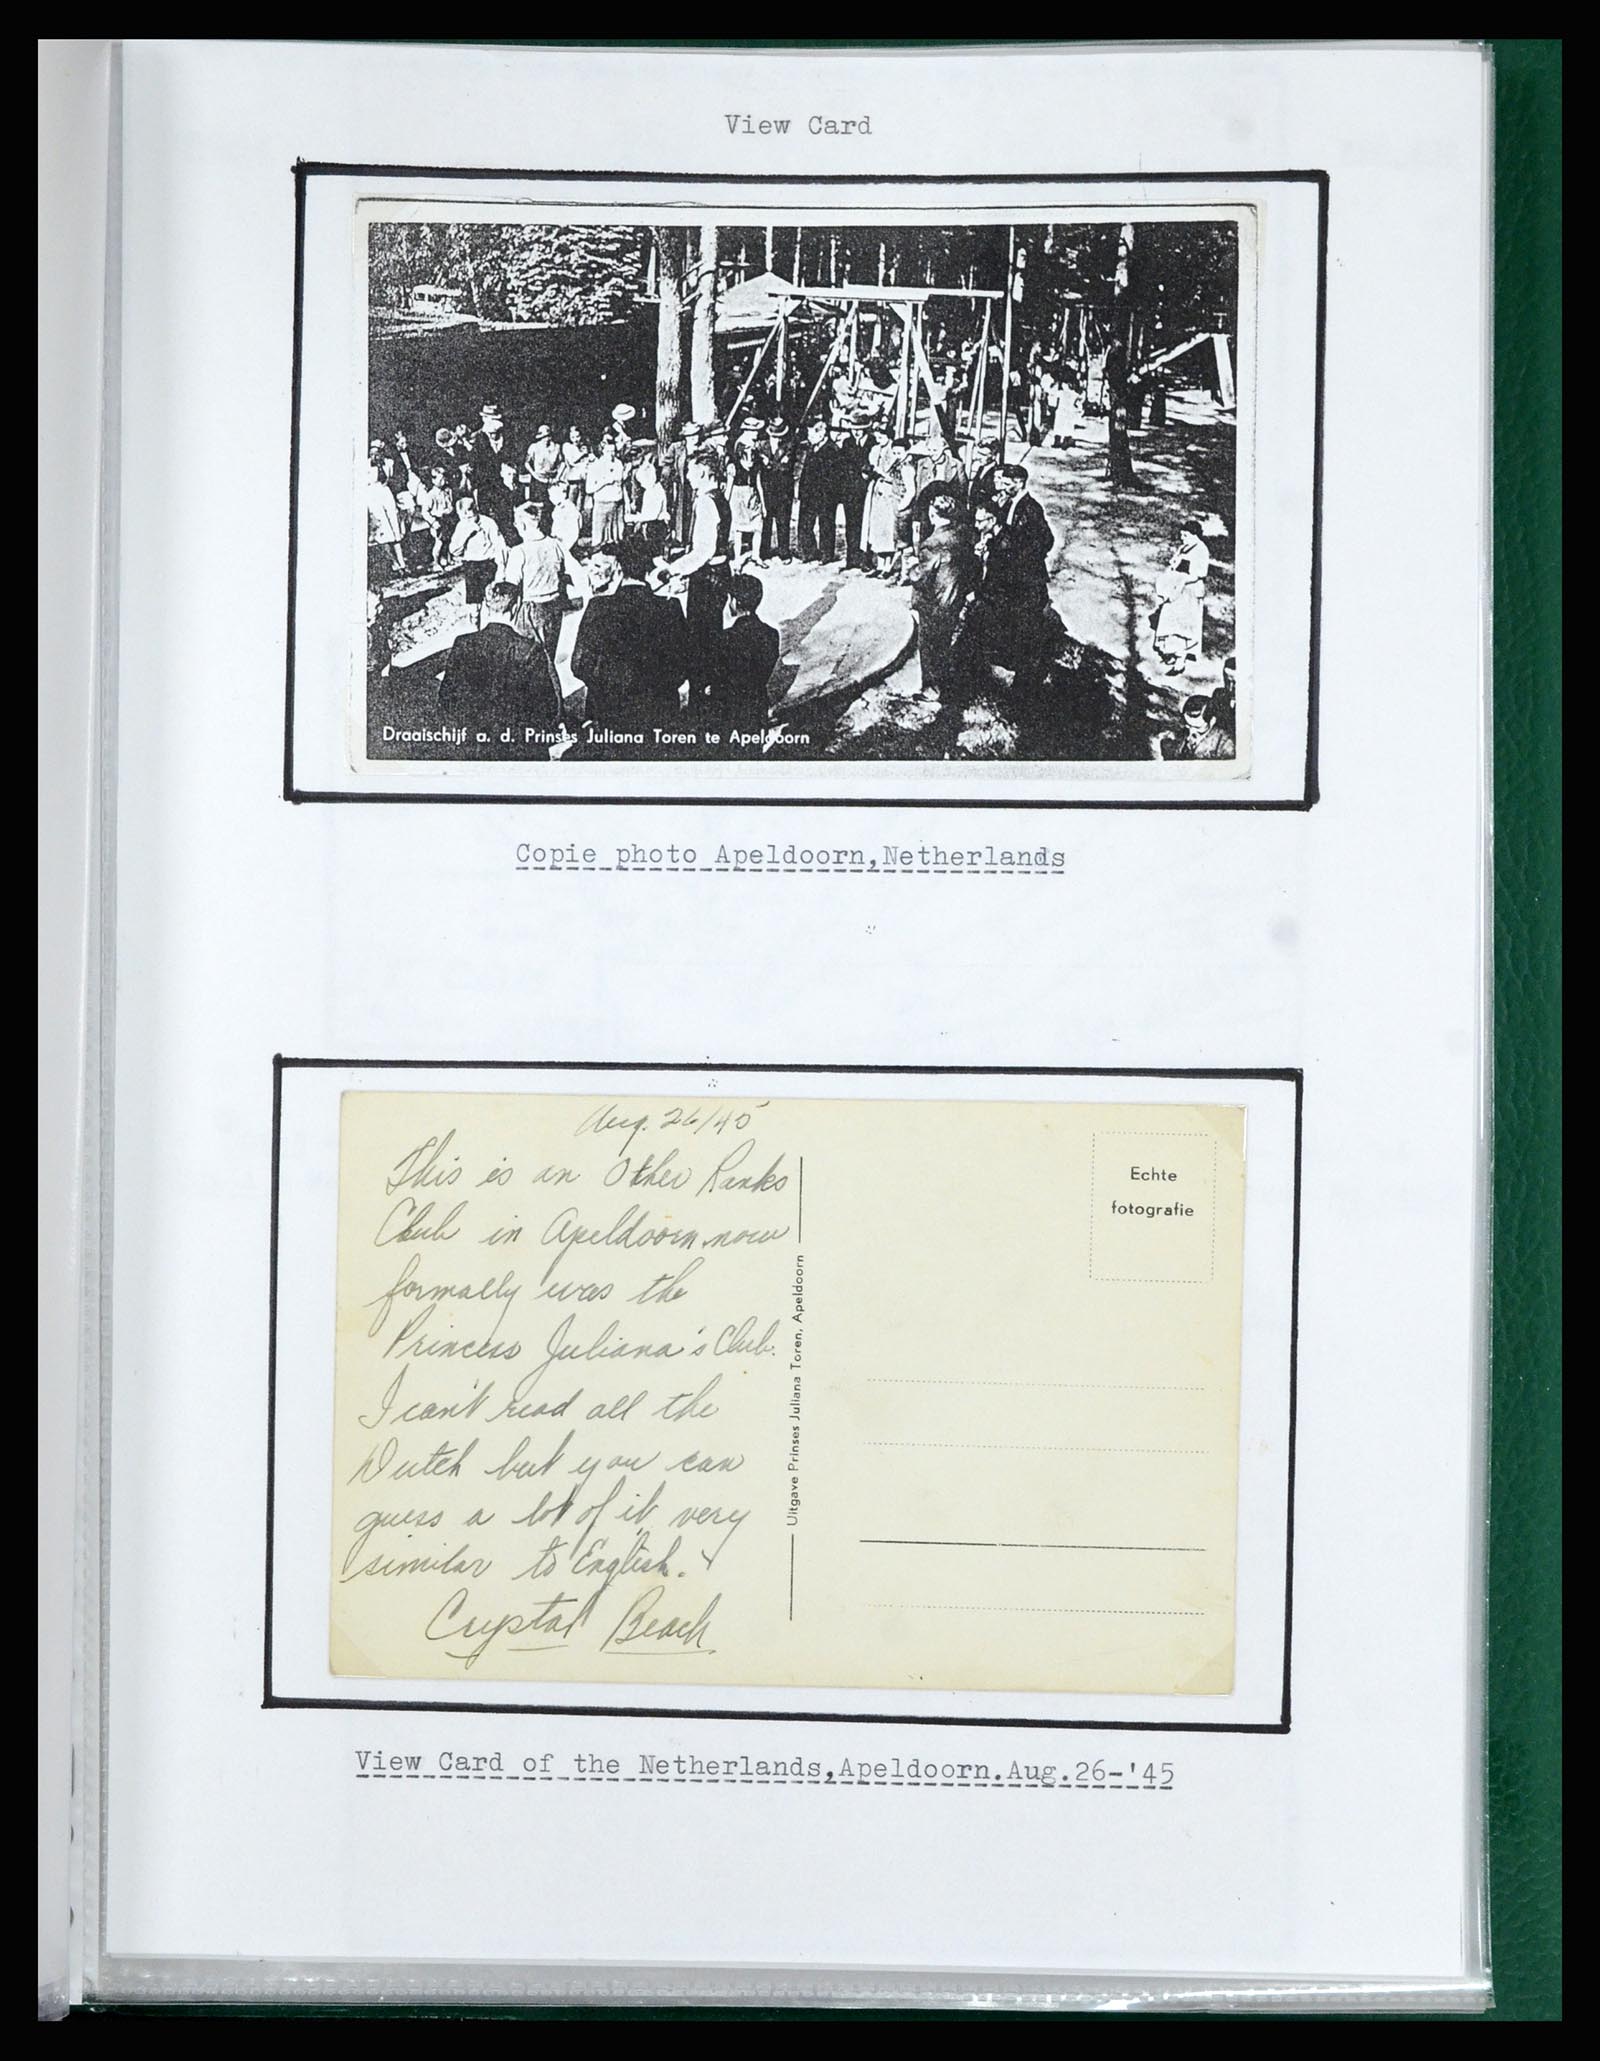 View Card
Draaischijf a. d. Prinses Juliana Toren te Apeldoorn
Copie photo Apeldoorn,Netherlands
Aug. 26/45
This is an Other Ranks
Club in Apeldoorn now
formally was the
Princess Juliana's Club.
I can't read all the
Dutch but you can
guess a lot of it, very
similar to English.
Crystal Beach
Uitgave Prinses Juliana Toren, Apeldoorn
Echte
fotografie
View Card of the Netherlands,Apeldoorn.Aug.26-'45